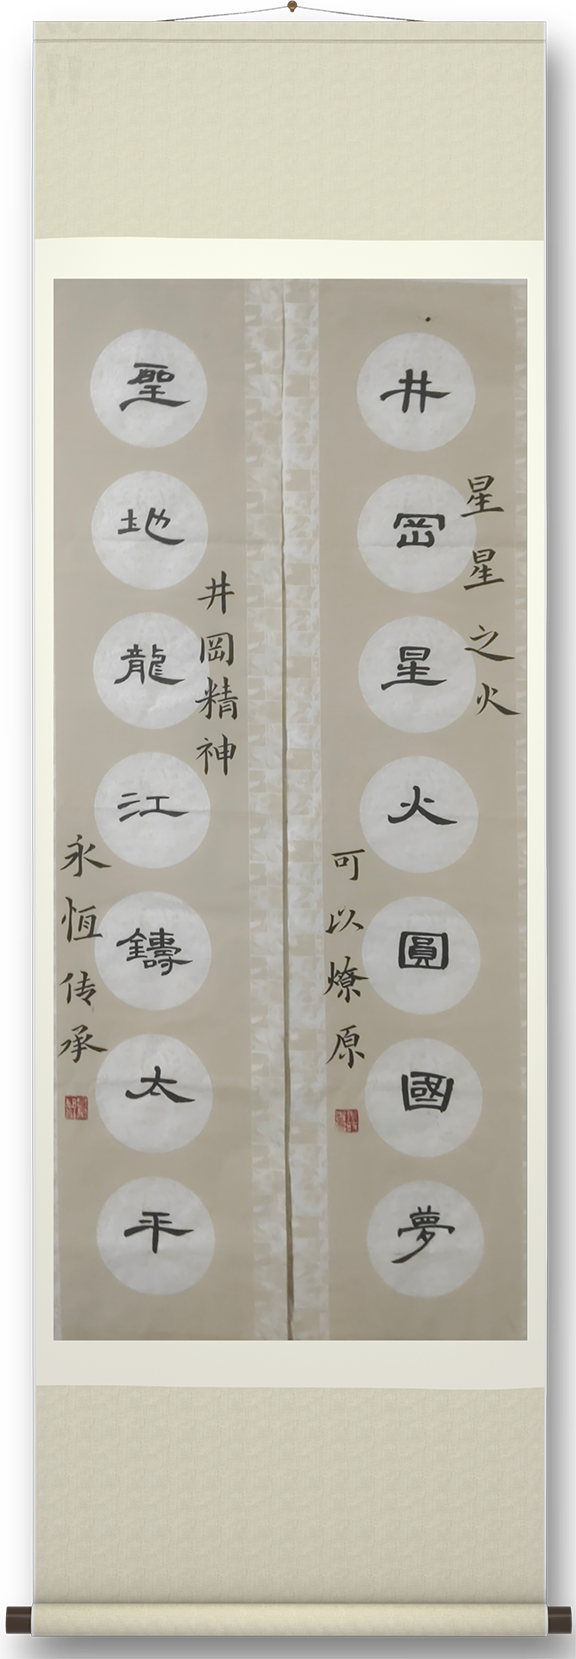 井冈星火圓國夢
星星之火
可以燎原
聖地龍江鑄太平
井岡精神
永恒传承